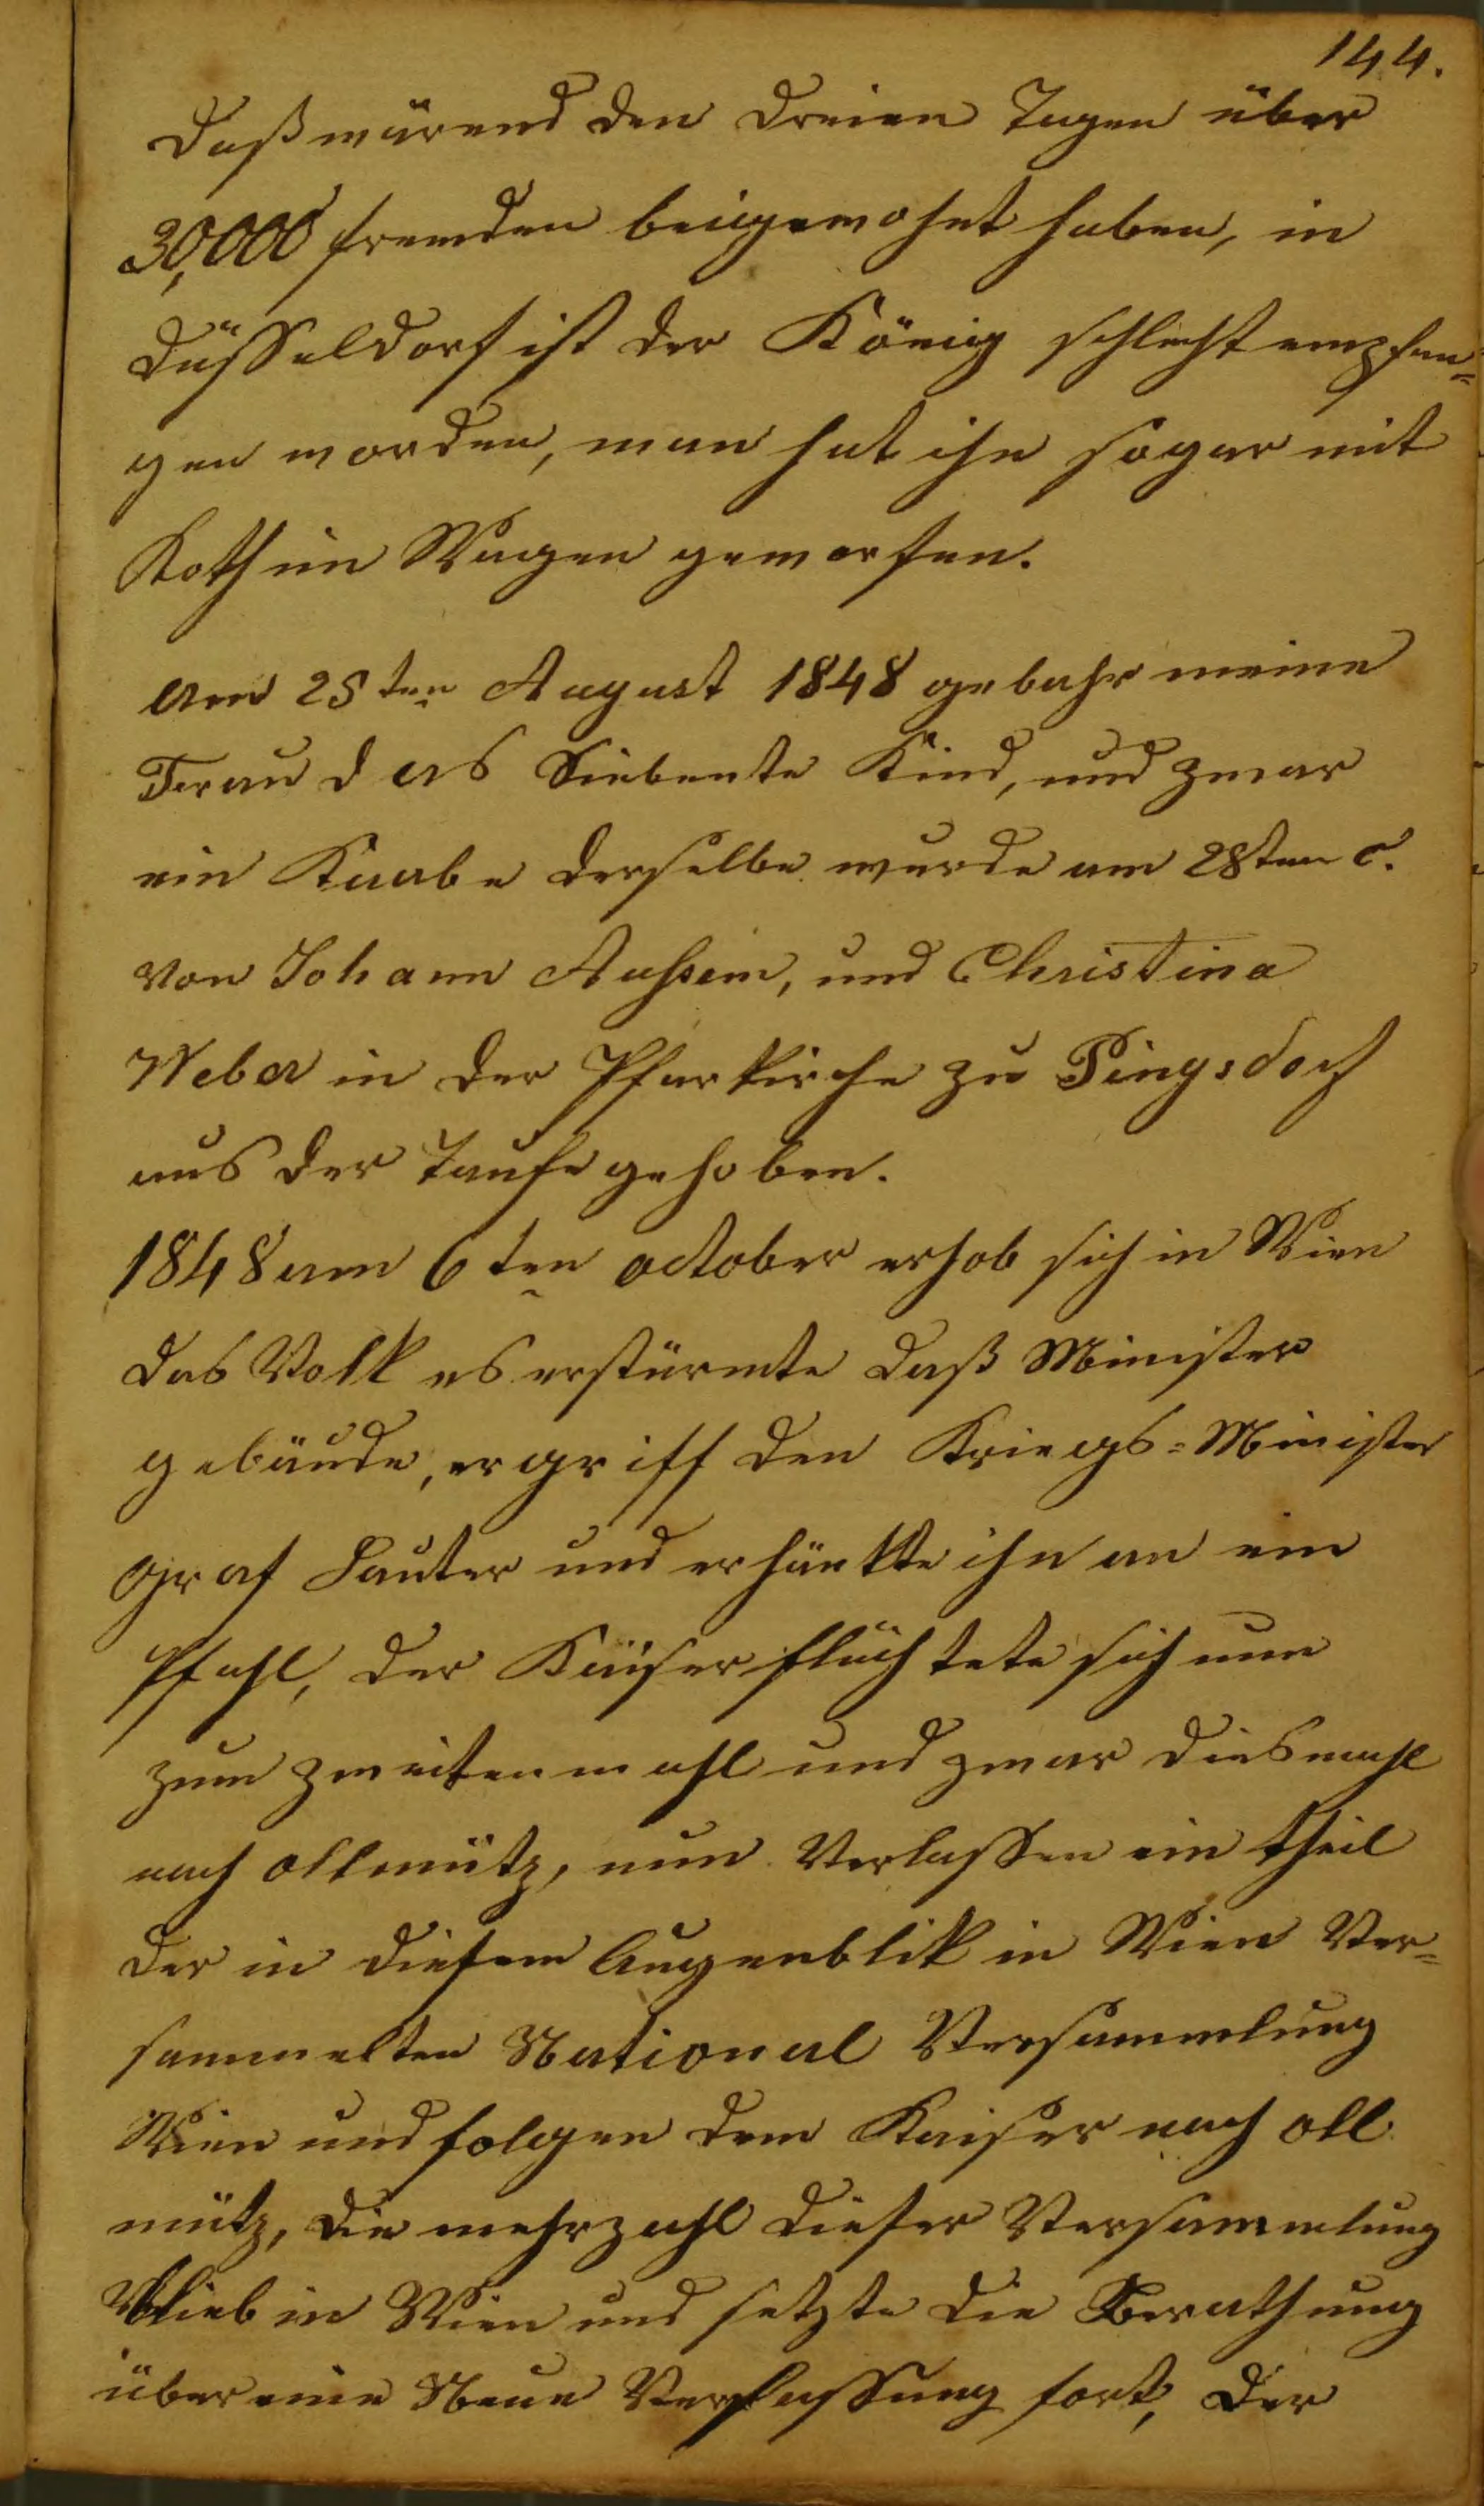 144.
daß wärend den dreien Tagen über
30,000 fremden beigewohnt haben, in
Düsseldorf ist der König schlecht empfan=
gen worden, man hat ihn sogar mit
Koth im Wagen geworfen.
Am 25ten August 1848 gebahr meine
Frau das Siebente Kind, und zwar
ein Knabe derselbe wurde am 28ten c.
von Johann Aussem, und Christina
Weber in der Pfarkirche zu Pingsdorf
aus der Taufe gehoben.
1848 am 6ten october erhob sich in Wien
das Volk es erstürmte daß Minister
gebäude, ergriff den Kriegs=Minister
Graf Lauter und erhänkte ihn an ein
Pfahl, der Kaiser flüchtete sich nun
zum zweitenmahl und zwar diesmahl
nach ollmütz, nun Verlassen ein theil
der in diesem Augenblik in Wien Ver=
sammelten National Versammlung
Wien und folgen dem Kaiser nach oll
mütz, die mehrzahl dieser Versammlung
blieb in Wien und setzte die Berathung
über eine Neue Verfassung fort, der